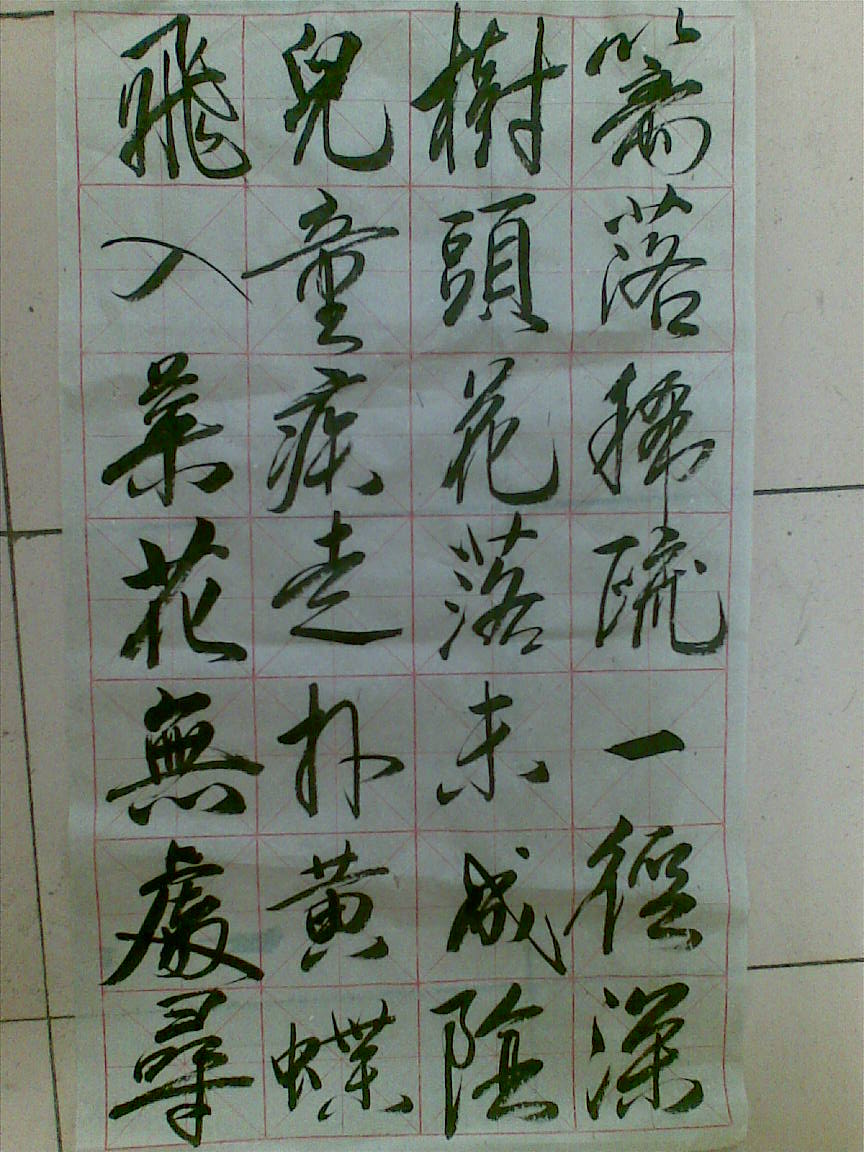 篱落稀疏一徑深
樹頭花落未成陰
兒童疾走扑黄蝶
飛入菜花無處尋